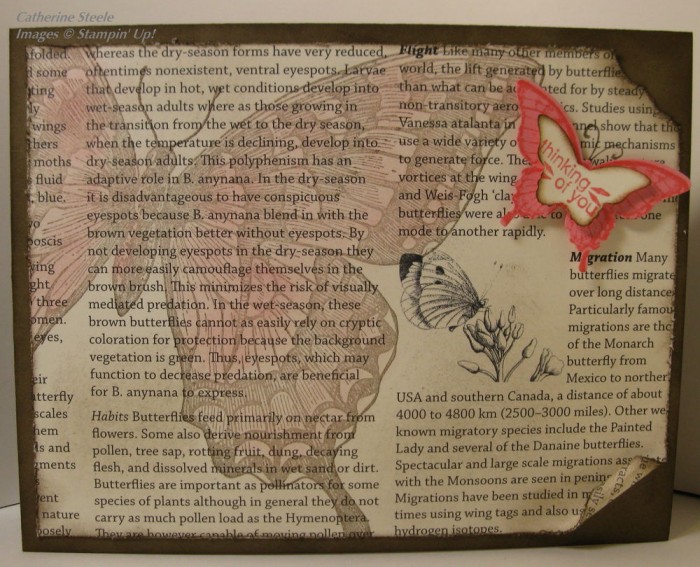 Catherine Steele
Images © Stampin' Up!
folded.
d some
ting
ly
wings
hers
moths
fluid
, blue,
vo
boscis
ving
ght
three
omen.
eyes,
eir
utterfly
scales
hem
ls and
gments
ent
nature
posely
whereas the dry-season forms have very reduced,
oftentimes nonexistent, ventral eyespots. Larvae
that develop in hot, wet conditions develop into
wet-season adults where as those growing in
the transition from the wet to the dry season,
when the temperature is declining, develop into
dry-season adults. This polyphenism has an
adaptive role in B. anynana. In the dry-season
it is disadvantageous to have conspicuous
eyespots because B. anynana blend in with the
brown vegetation better without eyespots. By
not developing eyespots in the dry-season they
can more easily camouflage themselves in the
brown brush. This minimizes the risk of visually
mediated predation. In the wet-season, these
brown butterflies cannot as easily rely on cryptic
coloration for protection because the background
vegetation is green. Thus, eyespots, which may
function to decrease predation, are beneficial
for B. anynana to express.
Habits Butterflies feed primarily on nectar from
flowers. Some also derive nourishment from
pollen, tree sap, rotting fruit, dung, decaying
flesh, and dissolved minerals in wet sand or dirt.
Butterflies are important as pollinators for some
species of plants although in general they do not
carry as much pollen load as the Hymenoptera.
They are however capable of moving pollen over
Flight Like many other members of
world, the lift generated by butterflie
than what can be ac nted for by steady
non-transitory aero ics. Studies using
Vanessa atalanta in show that the
use a wide variety o mic mechanisms
to generate force. The
vortices at the wing
and Weis-Fogh 'clap
butterflies were al to one
mode to another rapidly.
thinking
of you
Migration Many
butterflies migrate
over long distance
Particularly famou
migrations are tho
of the Monarch
butterfly from
Mexico to norther
USA and southern Canada, a distance of about
4000 to 4800 km (2500–3000 miles). Other we
known migratory species include the Painted
Lady and several of the Danaine butterflies.
Spectacular and large scale migrations ass
with the Monsoons are seen in penin
Migrations have been studied in m
times using wing tags and also us
hydrogen isotopes.